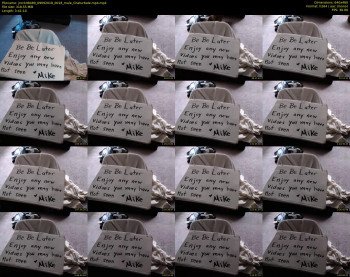 Be Be Later
Enjoy any new
Videos you may have
Not seen
Mike
Be Be Later
Enjoy any new
Videos you may have
Not seen
Mike
Be Be Later
Enjoy any new
Videos you may have
Not seen
Mike
Be Be Later
Enjoy any new
Videos you may have
Not seen
Mike
Be Be Later
Enjoy any new
Videos you may have
Not seen
Mike
Be Be Later
Enjoy any new
Videos you may have
Not seen
Mike
Be Be Later
Enjoy any new
Videos you may have
Not seen
Mike
Be Be Later
Enjoy any new
Videos you may have
Not seen
Mike
Be Be Later
Enjoy any new
Videos you may have
Not seen
Mike
Be Be Later
Enjoy any new
Videos you may have
Not seen
Mike
Be Be Later
Enjoy any new
Videos you may have
Not seen
Mike
Be Be Later
Enjoy any new
Videos you may have
Not seen
Mike
Be Be Later
Enjoy any new
Videos you may have
Not seen
Mike
Be Be Later
Enjoy any new
Videos you may have
Not seen
Mike
Be Be Later
Enjoy any new
Videos you may have
Not seen
Mike
Be Be Later
Enjoy any new
Videos you may have
Not seen
Mike